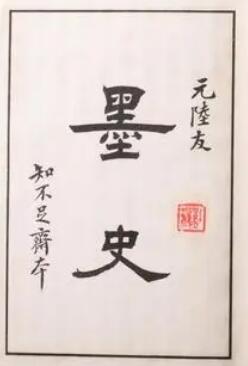 元陸友
墨史
知不足齋本